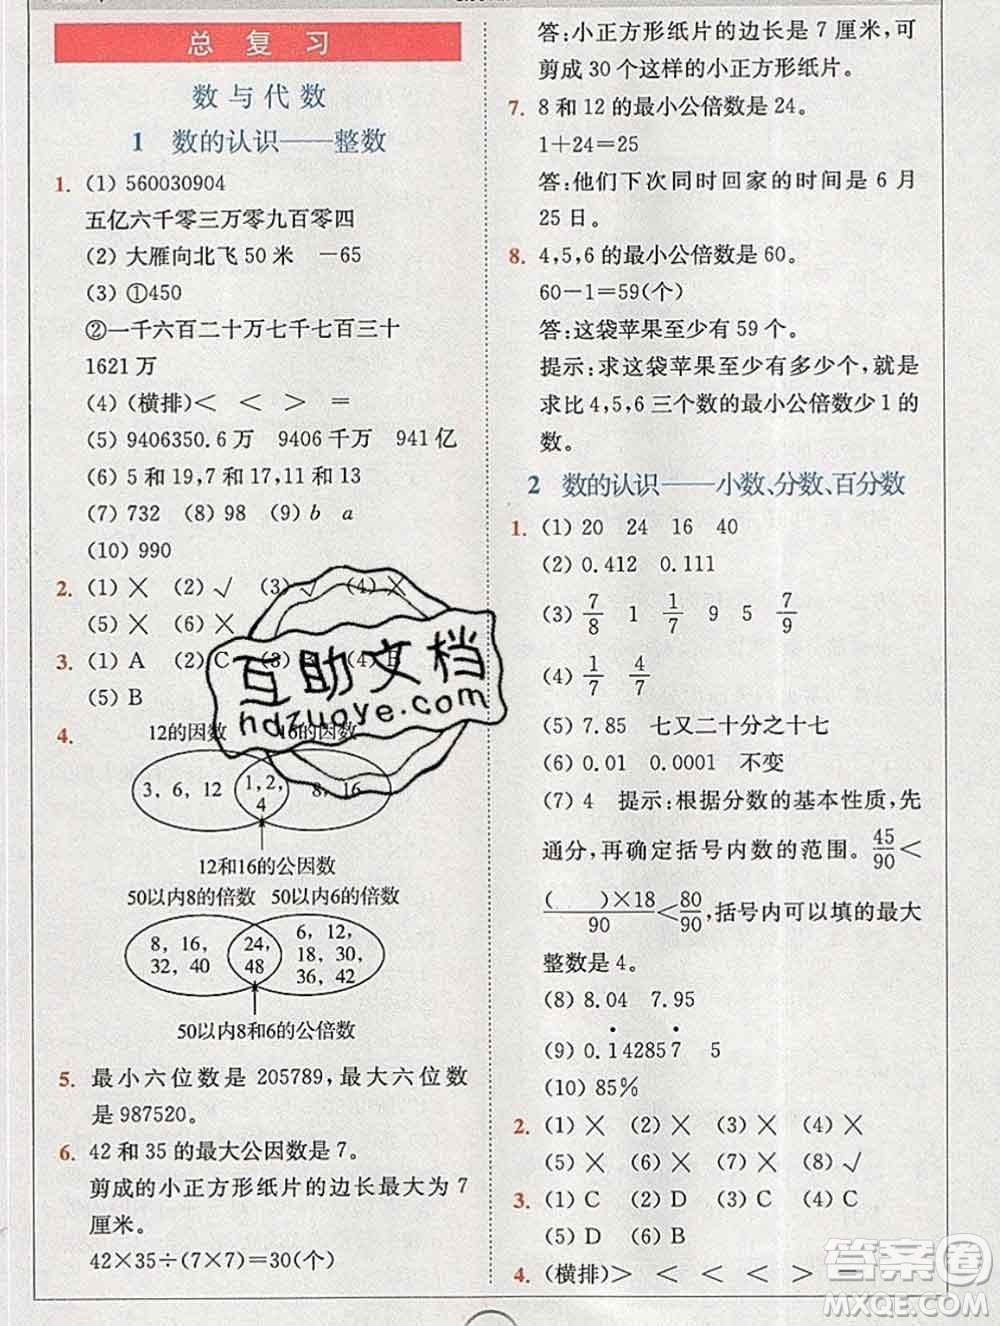 总 复 习
数与代数
1 数的认识——整数
1. (1) 560030904
五亿六千零三万零九百零四
(2) 大雁向北飞 50 米 -65
(3) ①450
②一千六百二十万七千七百三十
1621 万
(4) (横排)< < > =
(5) 9406350.6 万 9406 千万 941 亿
(6) 5 和 19,7 和 17,11 和 13
(7) 732 (8) 98 (9) b a
(10) 990
2. (1) × (2) √ (3) √ (4) ×
(5) × (6) ×
3. (1) A (2) C (3) (4)
(5) B
4. 12的因数 16的因数
3, 6, 12 1, 2, 4 8, 16
12和16的公因数
50以内8的倍数 50以内6的倍数
8, 16, 32, 40 24, 48 6, 12, 18, 30, 36, 42
50以内8和6的公倍数
5. 最小六位数是 205789,最大六位数
是 987520。
6. 42 和 35 的最大公因数是 7。
剪成的小正方形纸片的边长最大为 7
厘米。
42×35÷(7×7)=30(个)
答:小正方形纸片的边长是 7 厘米,可
剪成 30 个这样的小正方形纸片。
7. 8 和 12 的最小公倍数是 24。
1+24=25
答:他们下次同时回家的时间是 6 月
25 日。
8. 4,5,6 的最小公倍数是 60。
60-1=59(个)
答:这袋苹果至少有 59 个。
提示:求这袋苹果至少有多少个,就是
求比 4,5,6 三个数的最小公倍数少 1 的
数。
2 数的认识——小数、分数、百分数
1. (1) 20 24 16 40
(2) 0.412 0.111
(3) 7/8 1 1/7 9 5 7/9
(4) 1/7 4/7
(5) 7.85 七又二十分之十七
(6) 0.01 0.0001 不变
(7) 4 提示:根据分数的基本性质,先
通分,再确定括号内数的范围。45/90<
( )×18/90<80/90,括号内可以填的最大
整数是 4。
(8) 8.04 7.95
(9) 0.1̇42857̇ 5
(10) 85%
2. (1) × (2) × (3) × (4) ×
(5) × (6) × (7) × (8) √
3. (1) C (2) D (3) C (4) C
(5) D (6) B
4. (横排)> < < < > =
互助文档
hdzuoye.com
答案圈
MXQE.COM